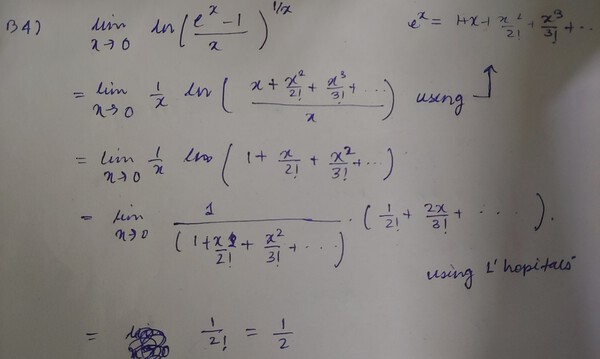 B4) lim x→0 ln((e^x - 1)/x)^(1/x) e^x = 1+x+x^2/2!+x^3/3!+..
= lim x→0 1/x ln((x + x^2/2! + x^3/3! + ...)/x) using
= lim x→0 1/x ln(1 + x/2! + x^2/3! + ...)
= lim x→0 1/(1+x/2! + x^2/3! + ...) . (1/2! + 2x/3! + ....).
using L'hopitals
= 1/2! = 1/2